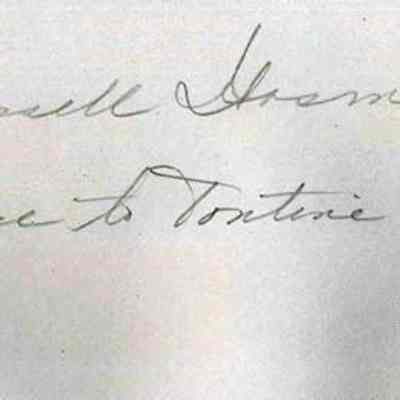 ssell Hosm
ce to Tontine